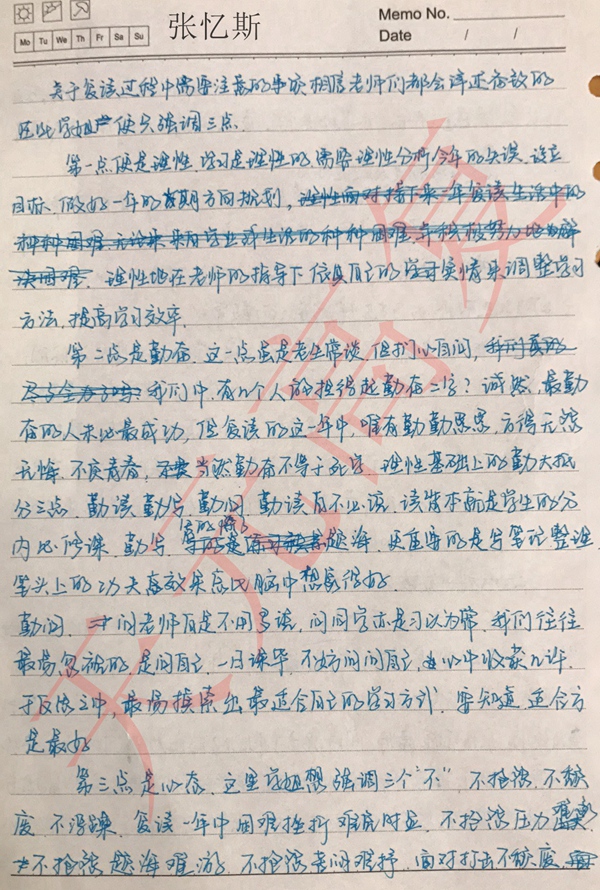 张忆斯
Memo No.
Mo Tu We Th Fr Sa Su
Date / /
关于复读过程中需要注意的事项相信老师们都会详述在教的
因此学姐便只强调三点.
第一点便是理性.学习是理性的需要理性分析今年的失误.设立
目标.做好一年的长期方向规划,理性面对接下来一年复读生活中的
种种困难无论来自学业或生活的种种困难,并积极努力地解
决困难.理性地在老师的指导下依具自己的学习实情来调整学习
方法,提高学习效率.
第二点是勤奋.这一点虽是老生常谈,但扪心自问,我们真的
尽全力了吗?我们中,有几个人能担得起勤奋二字?诚然,最勤
奋的人未必最成功,但复读的这一年中,唯有勤勤恳恳,方得无怨
无悔.不负青春,当然勤奋不等于死学.理性基础上的勤大抵
分三点.勤读勤写.勤问.勤读自不必说,读背本就是学生的分
内必修课.勤写.题海.更重要的是写笔记整理
笔头上的功夫在效果总比脑中想象得好.
勤问.问老师自是不用多读,问同学亦是习以为常.我们往往
最易忽视的是问自己.一日课毕,不妨问问自己,心中收获几许.
于反馈之中,最易摸索出最适合自己的学习方式.要知道,适合方
是最好
第三点是心态.这里学姐想强调三个“不”.不抱怨,不颓
废,不浮躁.复读一年中困难挫折难免时益.不抱怨压力
不抱怨题海难游,不抱怨苦闷难抒,面对打击不颓废,
天元高复